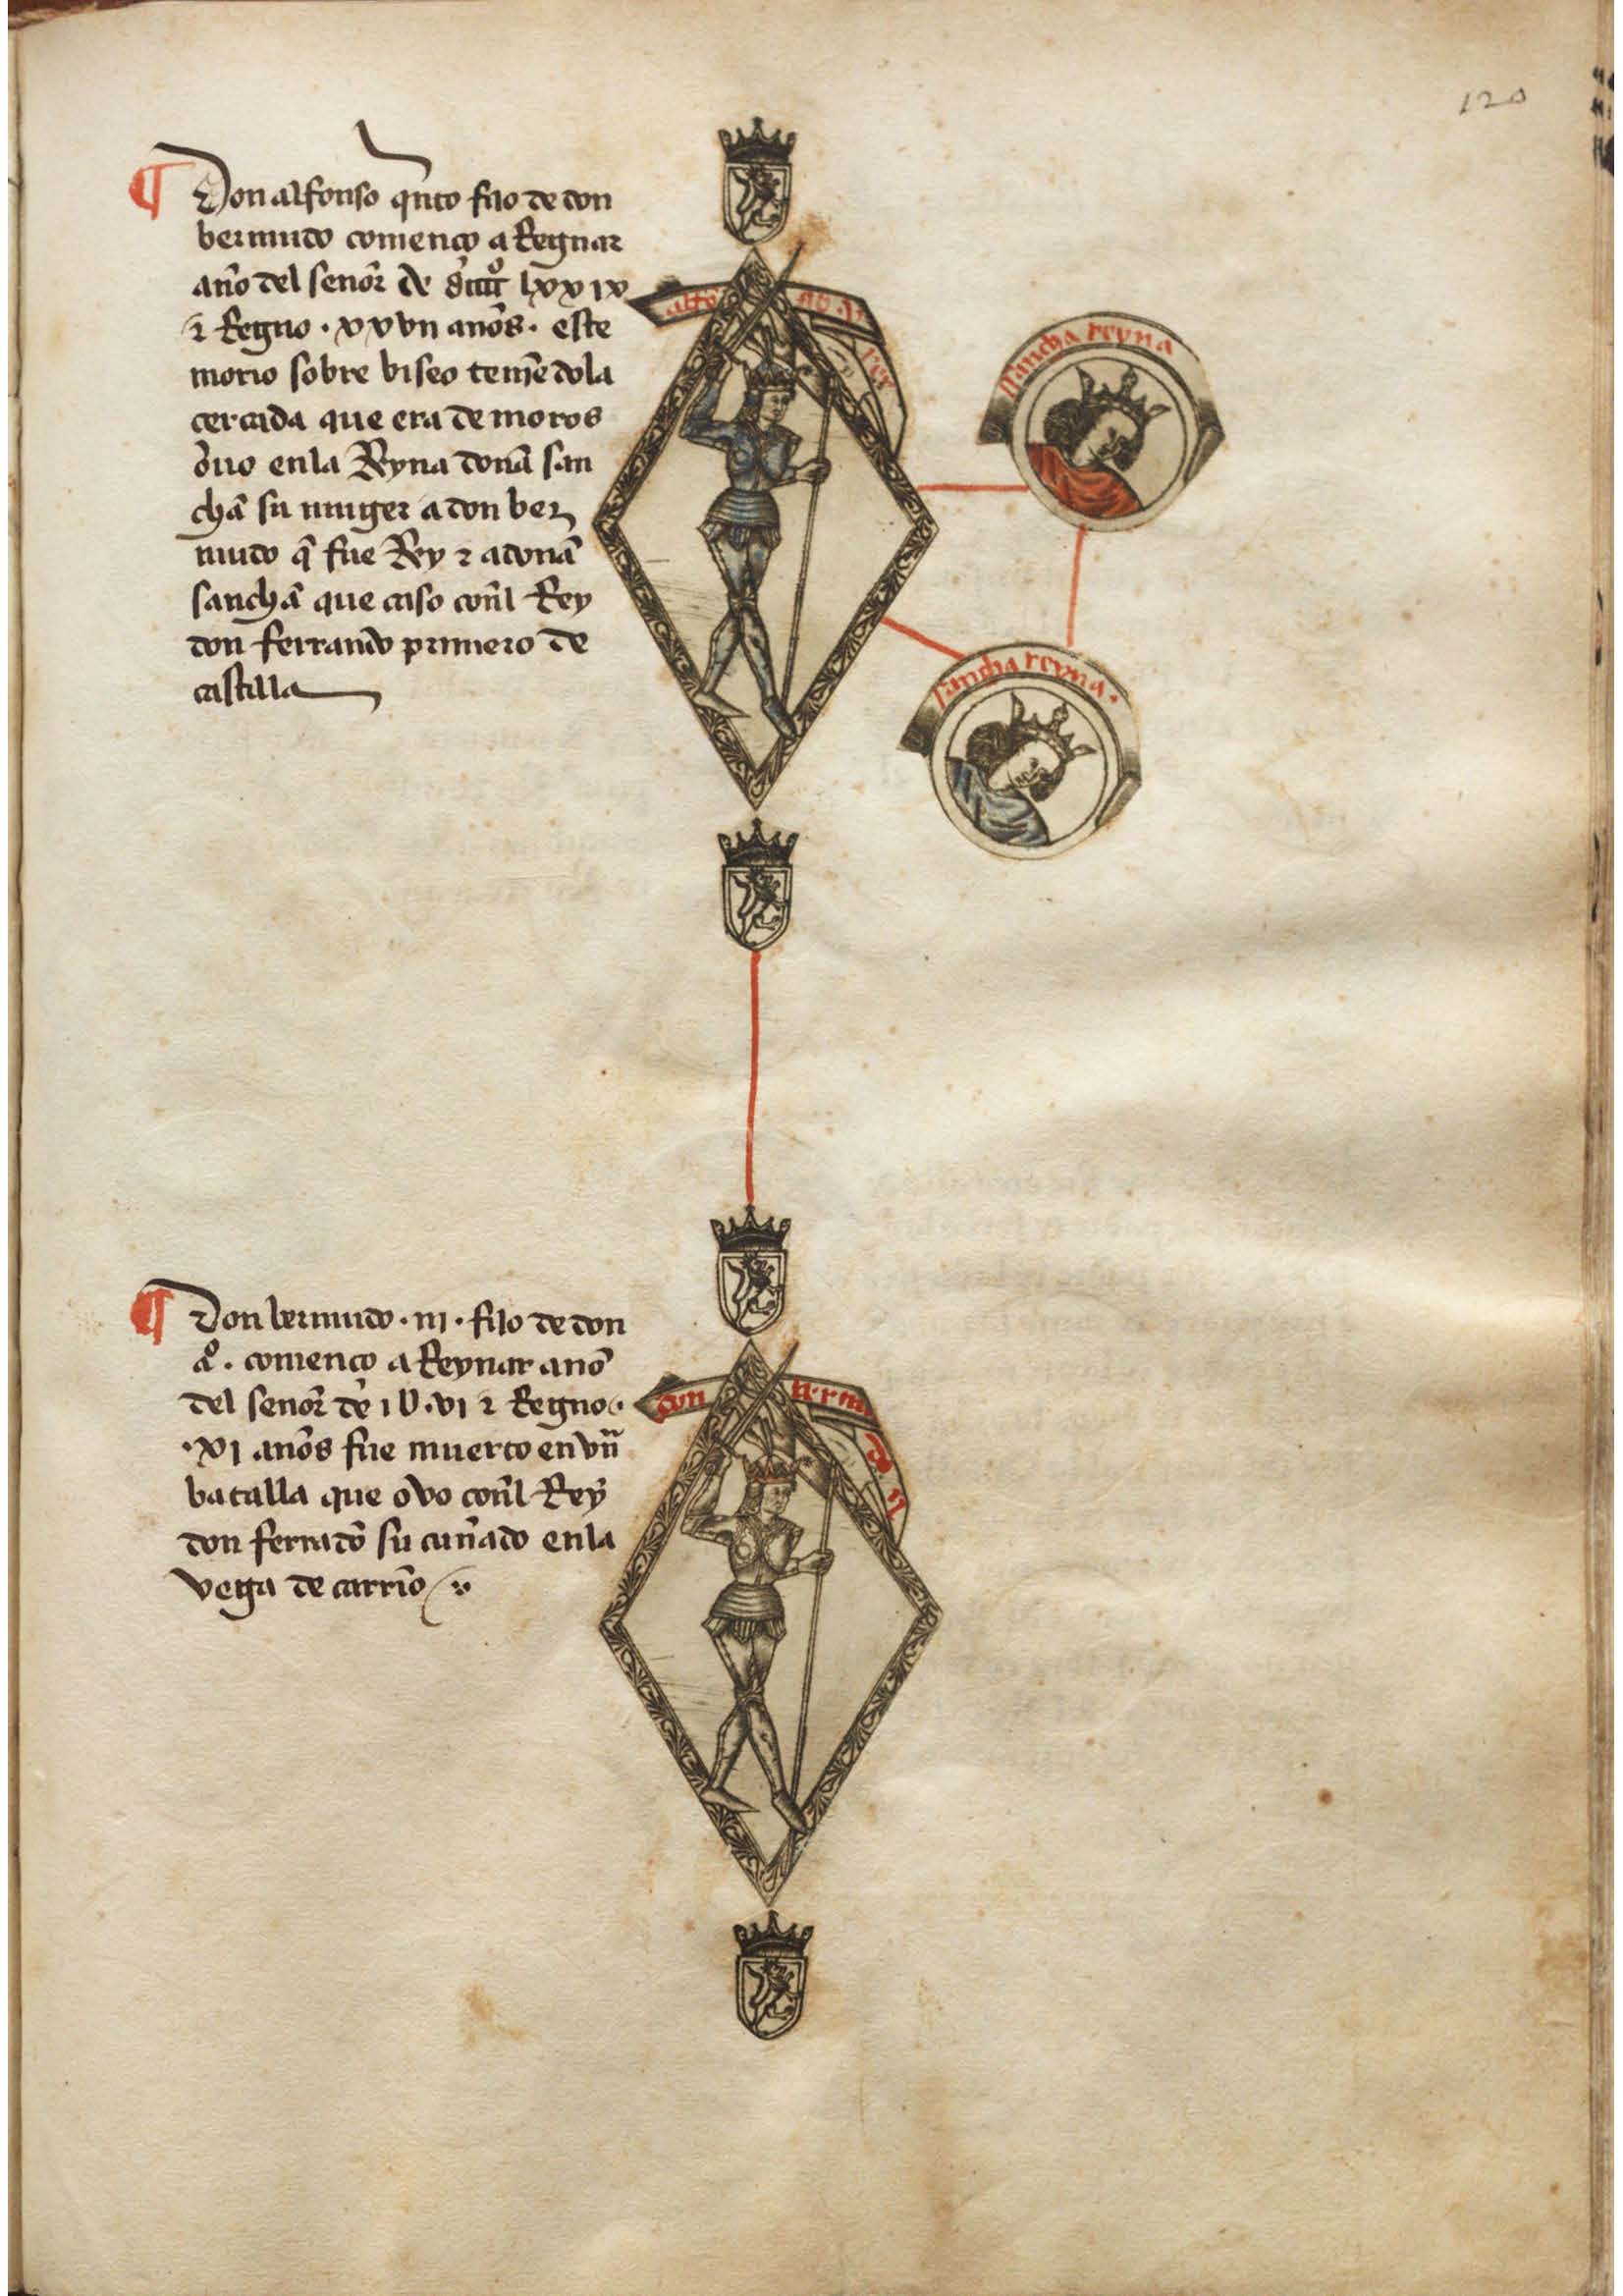 120
¶ Don alfonso qͥnto fijo de don
bermudo començo a Regnar
año del señor de lxxix
⁊ Regno · xxvii años · este
morio sobre viseo teniẽdola
cercada que era de moros
ouo enla Reyna doña san
cha su muger a don ber
mudo q̃ fue Rey ⁊ a doña
sancha que caso coñl Rey
don ferrando primero de
castilla
alfo no · v
rey
sancha reyna
sancha reyna ·
¶ Don bermudo · iii · fijo de don
aº · començo a Reynar año
del señor de · vi ⁊ Regno ·
· xi años fue muerto en vñ
batalla que ovo coñl Rey
don ferrãdo su cuñado enla
vega de carriõ
don